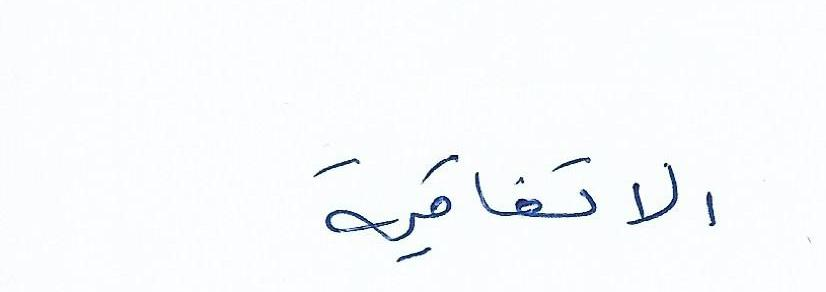 الاتفاقية